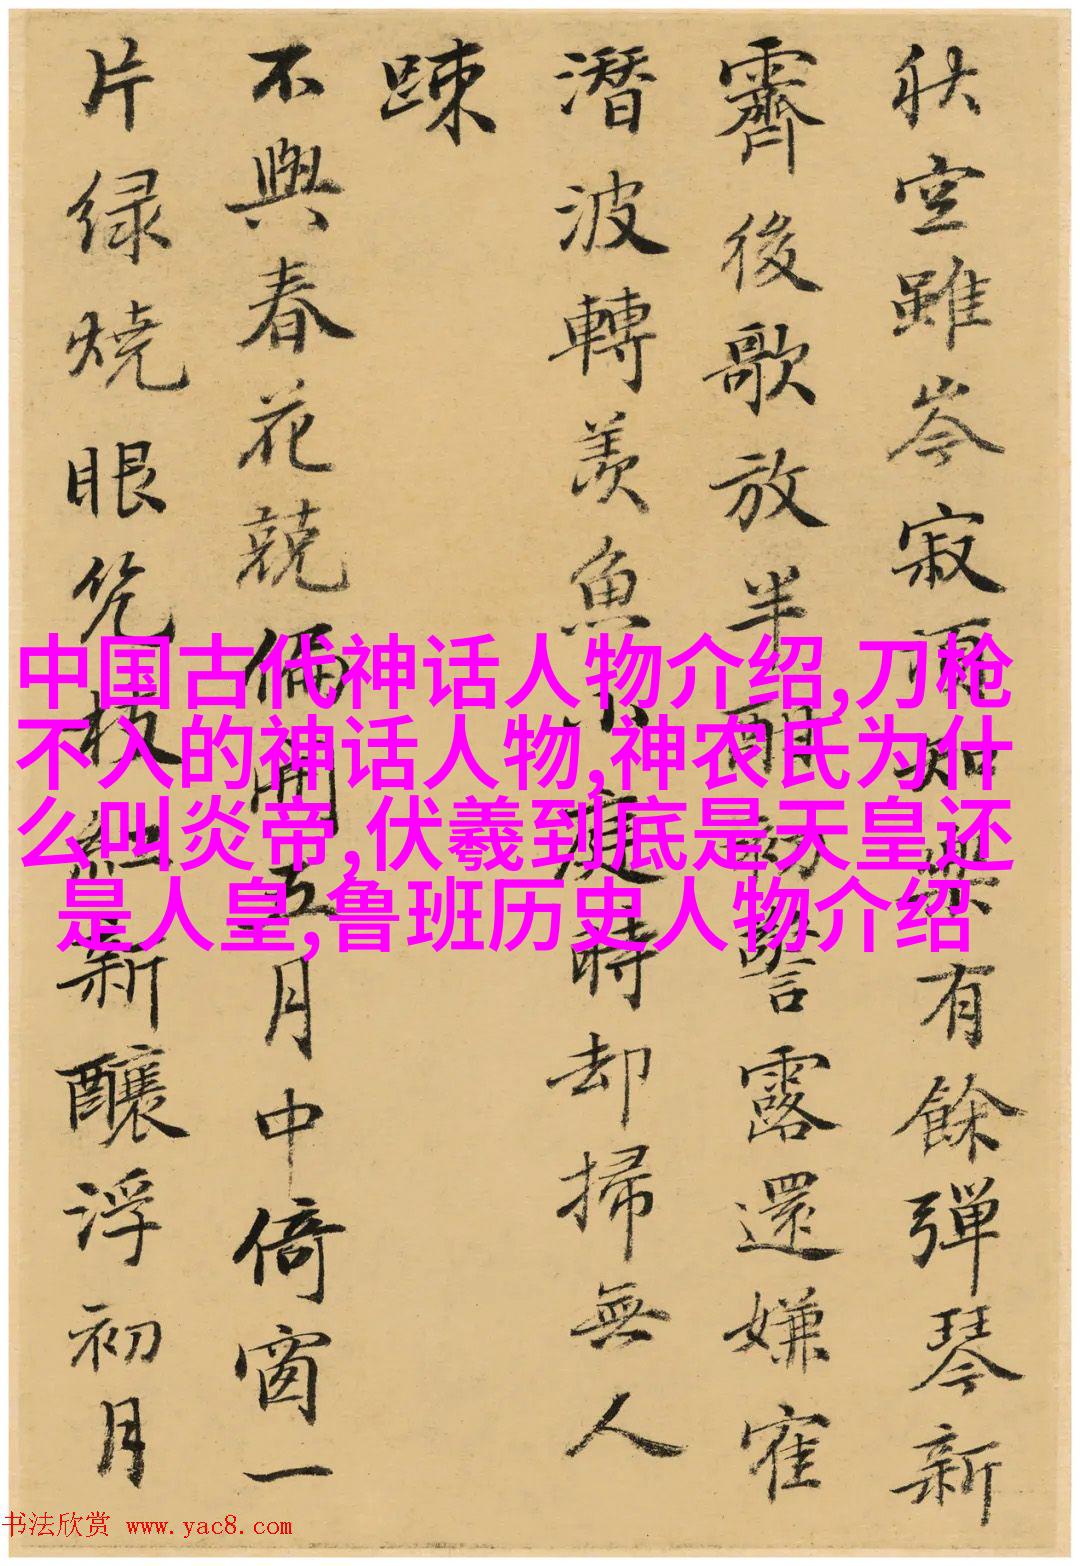 秋空雖岑寂知樂有餘彈琴新
霽後歌放半酣初警露還嫌寉
潛波轉羨魚應時却掃無人
踈
不與春花競偏開五月中倚窗一
片緑燒眼枝紅新釀浮初月
中国古代神话人物介绍,刀枪
不入的神话人物,神农氏为什
么叫炎帝,伏羲到底是天皇还
是人皇,鲁班历史人物介绍
书法欣赏 www.yac8.com